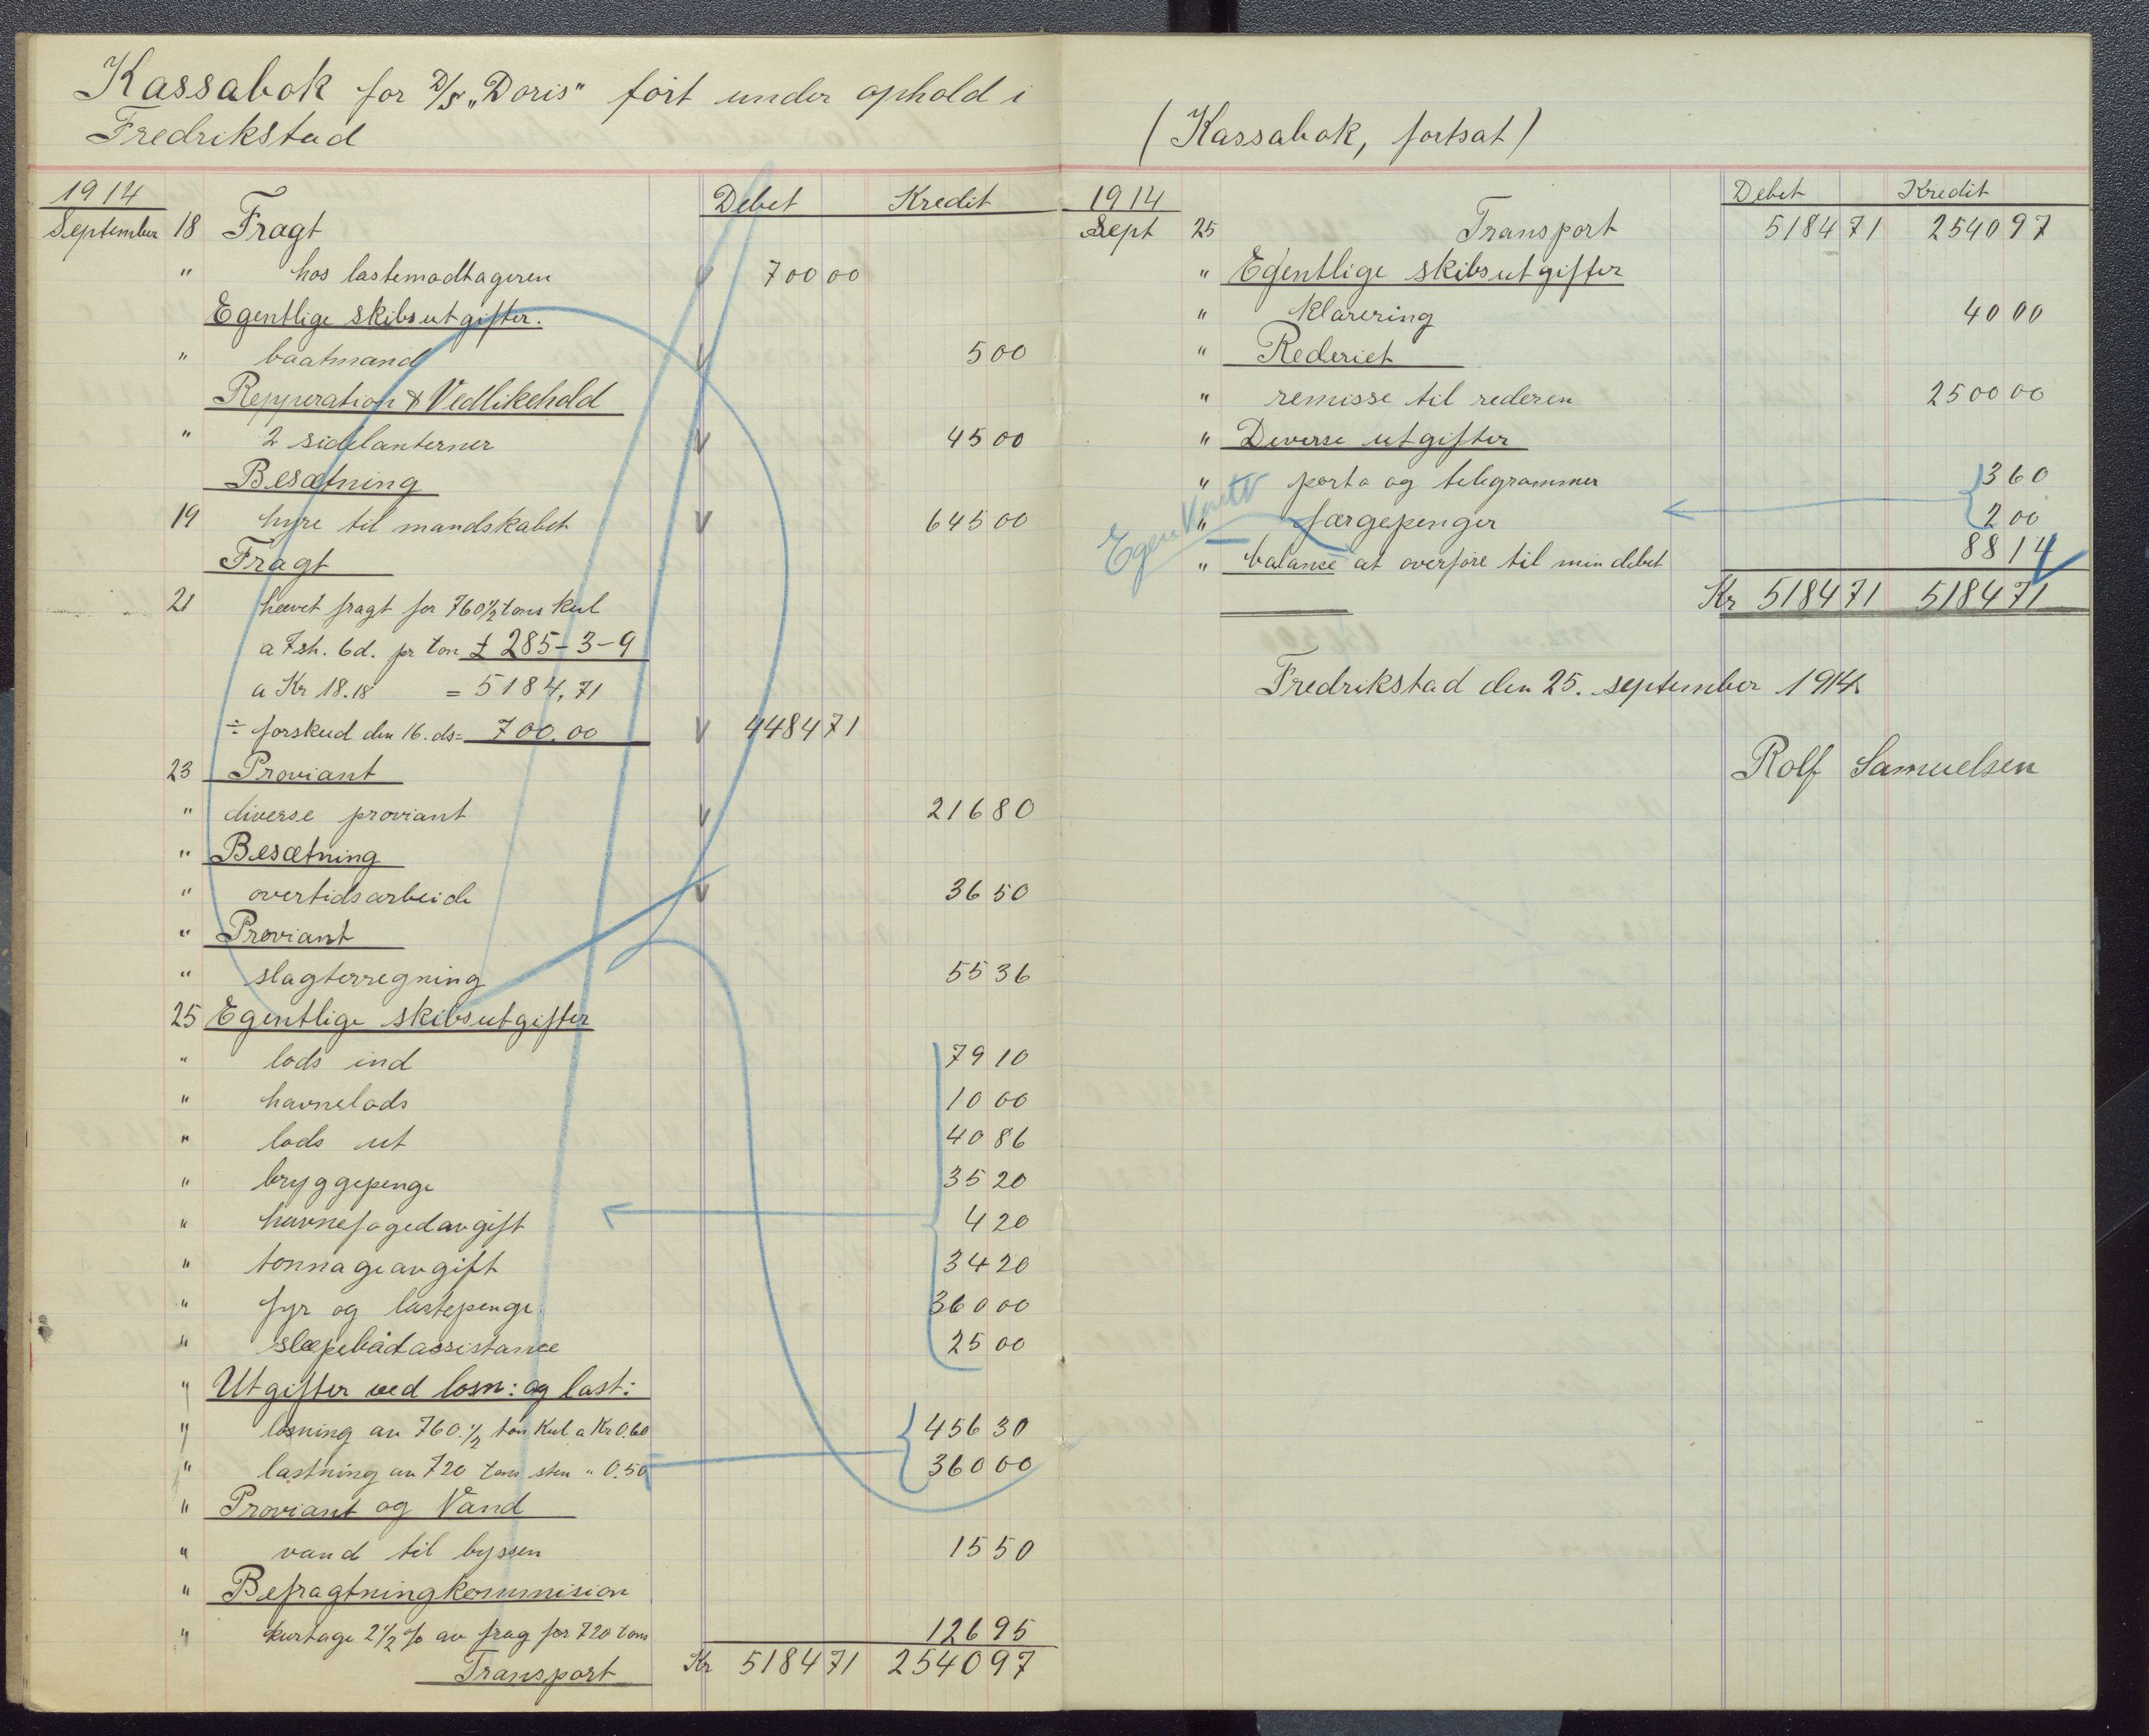 Kassabok for D/S „Doris" ført under ophold i
Fredrikstad
1914 Debet Kredit
September 18 Fragt
" hos lastemodtageren 700 00
Egentlige skibsutgifter.
" baatmand 5 00
Repperation & Vedlikehold
" 2 sidelanterner 45 00
Besætning
19 hyre til mandskabet 645 00
Fragt
21 hævet fragt for 760 1/2 tons kul
a 7 sh. 6d. pr ton £ 285-3-9
a Kr 18.18 = 5184,71
÷ forskud den 16. ds= 700.00 4484 71
23 Proviant
" diverse proviant 216 80
" Besætning
" overtidsarbeide 36 50
" Proviant
" slagterregning 55 36
25 Egentlige skibsutgifter
" lods ind 79 10
" havnelods 10 00
" lods ut 40 86
" bryggepenge 35 20
" havnefogedavgift 4 20
" tonnageavgift 34 20
" fyr og lastepenge 360 00
" slæpebådassistance 25 00
" Utgifter ved losn: og last:
" losning av 760.1/2 ton kul a Kr 0.60 456 30
" lastning av 720 tons sten " 0.50 360 00
" Proviant og Vand
" vand til byssen 15 50
" Befragtningkommision
" kurtage 2 1/2 % av frag for 720 tons 126 95
Transport Kr 5184 71 2540 97
(Kassabok, fortsat)
1914 Debet Kredit
Sept 25 Transport 5184 71 2540 97
" Egentlige skibsutgifter
" klarering 40 00
" Rederiet
" remisse til rederen 2500 00
" Diverse utgifter
" porto og telegrammer 3 60
" færgepenger 2 00
Egen Konto
" balanse at overføre til min debet 88 14
Kr 5184 71 5184 71
Fredrikstad den 25. september 1914
Rolf Samuelsen